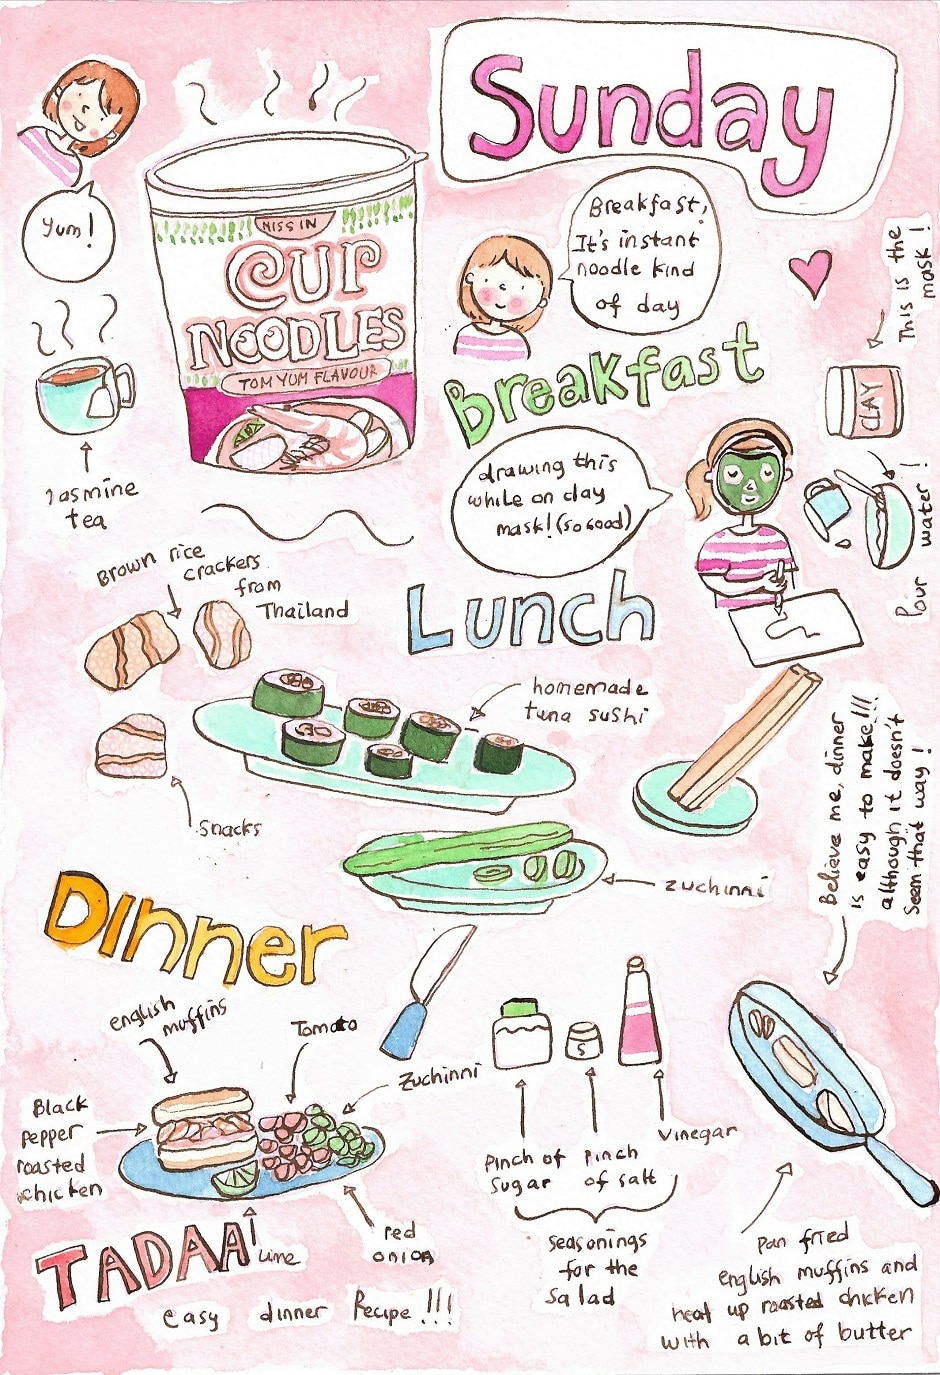 Sunday
Yum!
NISSIN
CUP
NOODLES
TOM YUM FLAVOUR
Breakfast,
It's instant
noodle kind
of day
This is the
mask!
Breakfast
CLAY
Jasmine
tea
drawing this
while on clay
mask! (so good)
Pour water!
Brown rice
crackers
from
Thailand
Lunch
homemade
tuna sushi
Snacks
zuchinni
Believe me, dinner
is easy to make!!!
although it doesn't
seem that way!
Dinner
english
muffins
Tomato
Zuchinni
Black
Pepper
roasted
chicken
red
onion
Lime
S
Pinch of
Sugar
Pinch
of salt
Vinegar
seasonings
for the
salad
TADAA!
easy dinner Recipe!!!
pan fried
english muffins and
heat up roasted chicken
with a bit of butter